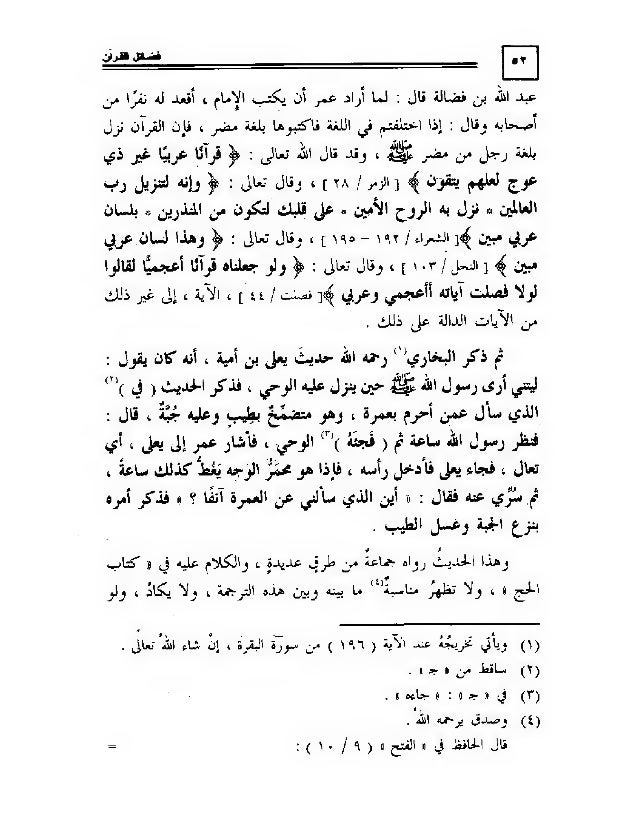 ٥٢
فضائل القرآن
عبد الله بن فضالة قال : لما أراد عمر أن يكتب الإمام ، أقعد له نفرًا من
أصحابه وقال : إذا اختلفتم في اللغة فاكتبوها بلغة مضر ، فإن القرآن نزل
بلغة رجل من مضر ﷺ ، وقد قال الله تعالى : ﴿ قرآنًا عربيًا غير ذي
عوج لعلهم يتقون ﴾ [ الزمر / ٢٨ ] ، وقال تعالى : ﴿ وإنه لتنزيل رب
العالمين * نزل به الروح الأمين * على قلبك لتكون من المنذرين * بلسان
عربي مبين ﴾ [ الشعراء / ١٩٢ – ١٩٥ ] ، وقال تعالى : ﴿ وهذا لسان عربي
مبين ﴾ [ النحل / ١٠٣ ] ، وقال تعالى : ﴿ ولو جعلناه قرآنًا أعجميًّا لقالوا
لولا فصلت آياته أأعجمي وعربي ﴾ [ فصلت / ٤٤ ] ، الآية ، إلى غير ذلك
من الآيات الدالة على ذلك .
ثم ذكر البخاري (١) رحمه الله حديثَ يعلى بن أمية ، أنه كان يقول :
ليتني أرى رسول الله ﷺ حين ينزل عليه الوحي ، فذكر الحديث ( في ) (٢)
الذي سأل عمن أحرم بعمرة ، وهو متضمِّخٌ بطيبٍ وعليه جُبَّةٌ ، قال :
فنظر رسول الله ساعة ثم ( فَجِئَهُ ) (٣) الوحي ، فأشار عمر إلى يعلى ، أي
تعال ، فجاء يعلى فأدخل رأسه ، فإذا هو محمَرُّ الوَجه يَغُطُّ كذلك ساعةً ،
ثم سُرِّي عنه فقال : « أين الذي سألني عن العمرة آنفًا ؟ » فذكر أمره
بنزع الجبة وغسل الطيب .
وهذا الحديثُ رواه جماعةٌ من طرقٍ عديدةٍ ، والكلام عليه في « كتاب
الحج » ، ولا تظهرُ مناسبةٌ (٤) ما بينه وبين هذه الترجمة ، ولا يكادُ ، ولو
(١) ويأتي تخريجُهُ عند الآية ( ١٩٦ ) من سورة البقرة ، إنْ شاء اللهُ تعالى .
(٢) ساقط من « جـ » .
(٣) في « جـ » : « جاءه » .
(٤) وصدق يرحمه اللهُ .
قال الحافظ في « الفتح » ( ٩ / ١٠ ) :
=